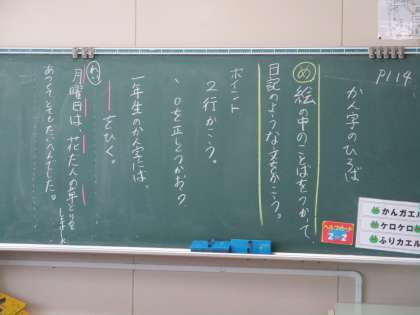 P114
かん字のひろば
め 絵の中のことばをつかって、
日記のような文をかこう。
ポイント
2行かこう。
、。を正しくつかおう
一年生のかん字には、
をひく。
れい
月曜日は、花だんの草とりを
しました。
あつくてとてもたいへんでした。
ヘルプカード
かんガエル
ケロケロ
ふりカエル